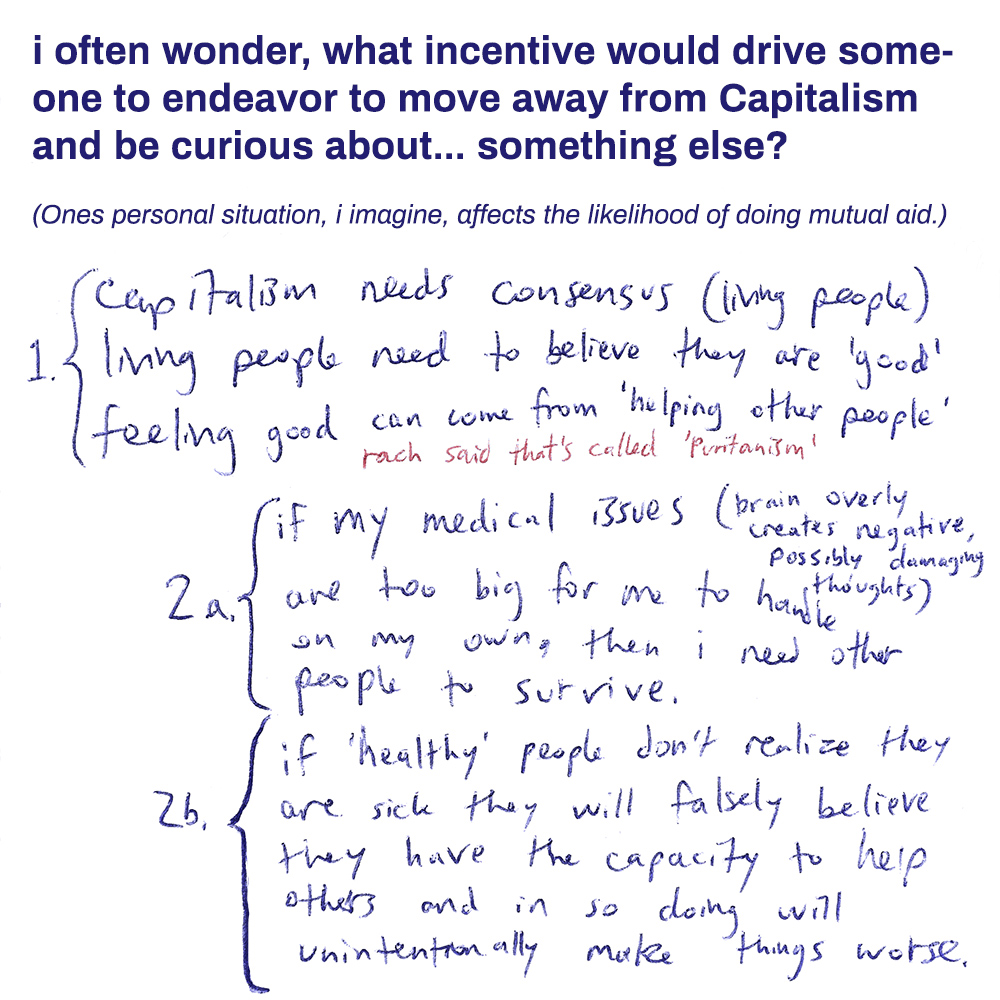 i often wonder, what incentive would drive some-
one to endeavor to move away from Capitalism
and be curious about... something else?
(Ones personal situation, i imagine, affects the likelihood of doing mutual aid.)
1. Capitalism needs consensus (living people)
living people need to believe they are 'good'
feeling good can come from 'helping other people'
rach said that's called 'Puritanism'
2a. if my medical issues (brain overly
creates negative,
possibly damaging
thoughts)
are too big for me to handle
on my own, then i need other
people to survive.
2b. if 'healthy' people don't realize they
are sick they will falsely believe
they have the capacity to help
others and in so doing will
unintentionally make things worse.